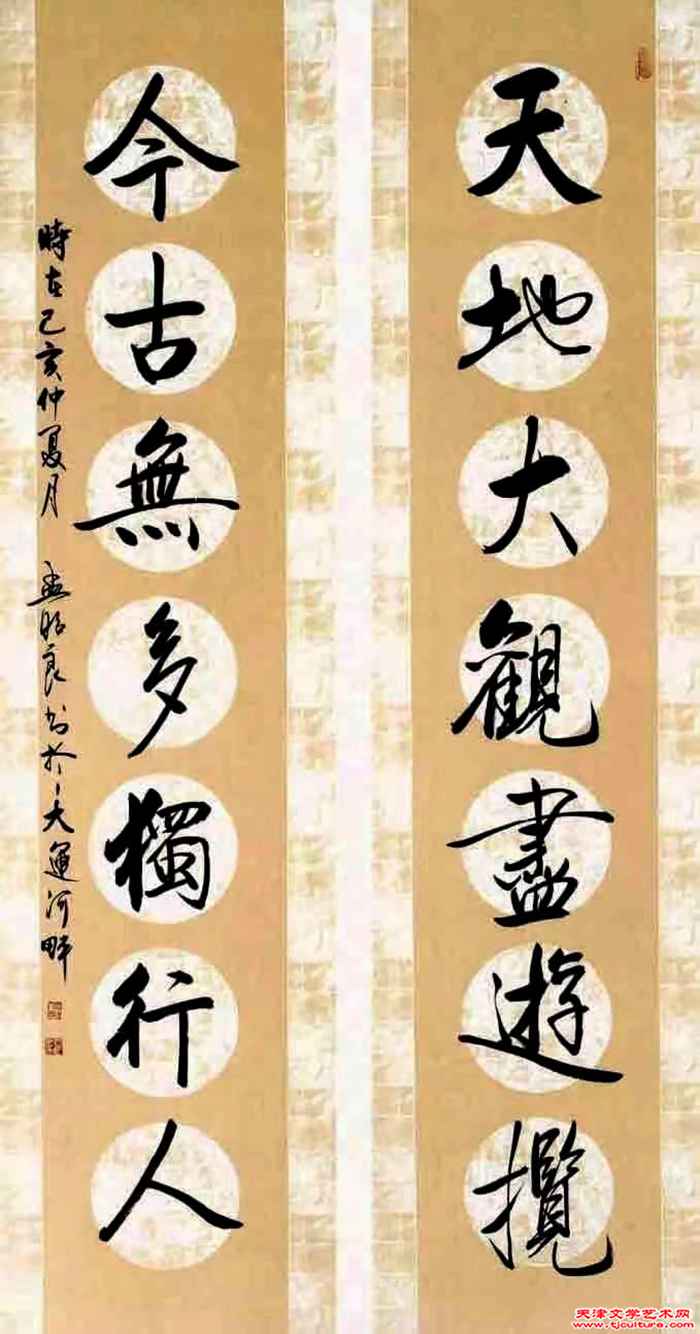 天地大觀盡遊攬
今古無多獨行人
時在己亥仲夏月 孟昭良书於大運河畔
天津文学艺术网
www.tjculture.com